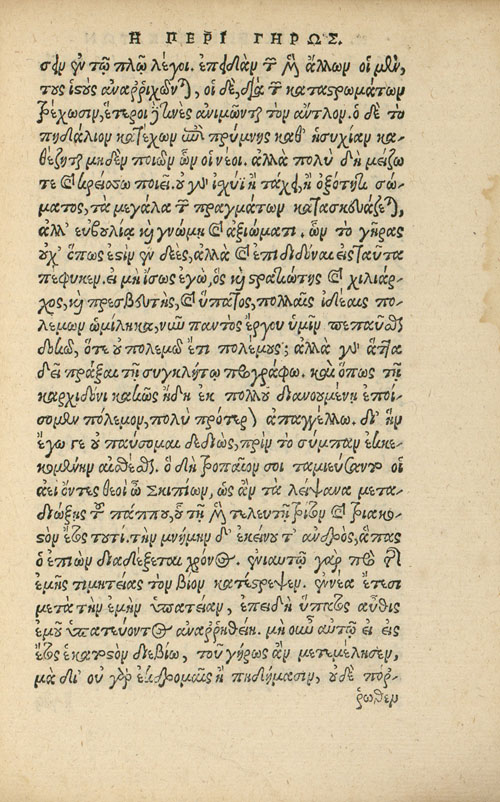 Η ΠΕΡΙ ΓΗΡΩΣ.
σιν ἐν τῷ πλῷ λέγοι. ἐπειδὰν τῶν ἄλλων οἱ μὲν,
τοὺς ἱστοὺς ἀναῤῥιχῶνται, οἱ δὲ, διὰ τῶν καταστρωμάτων
τρέχωσιν, ἕτεροι τινὲς ἀνιμῶνται τὸν ἄντλον. ὁ δὲ τὸ
πηδάλιον κατέχων ἐπὶ πρύμνης καθ' ἡσυχίαν κα-
θέζηται μηδὲν ποιῶν ὧν οἱ νέοι. ἀλλὰ πολὺ δὴ μείζω
τε καὶ κρείσσω ποιεῖ. οὐ γὰρ ἰσχύϊ ἢ τάχει, ἢ ὀξύτητι σώ-
ματος, τὰ μεγάλα τῶν πραγμάτων κατασκευάζεται,
ἀλλ' εὐβουλίᾳ καὶ γνώμῃ καὶ ἀξιώματι. ὧν τὸ γῆρας
οὐχ' ὅπως ἐστὶν ἐνδεὲς, ἀλλὰ καὶ ἐπιδιδόναι εἰς ταῦτα
πέφυκεν. εἰ μὴ ἴσως ἐγὼ, ὃς καὶ στρατιώτης καὶ χιλίαρ-
χος, καὶ πρεσβευτὴς, καὶ ὕπατος, πολλαῖς ἰδέαις πο-
λέμων ὡμίληκα, νῦν παντὸς ἔργου ὑμῖν πεπαῦσθαι
δοκῶ, ὅτε οὐ πολεμῶ ἔτι πολέμους; ἀλλὰ γὰρ ἅττα
δεῖ πράξαι τῇ συγκλήτῳ προγράφω. καὶ ὅπως τῇ
καρχηδόνι κακῶς ἤδη ἐκ πολλοῦ διανοουμένῃ ἐποί-
σομεν πόλεμον, πολὺ πρότερον ἀπαγγέλλω. δι' ἣν
ἔγω γε οὐ παύσομαι δεδιὼς, πρὶν τὸ σύμπαν ἐκκε-
κομμένην αἰσθέσθαι. ὃ δὴ τροπαῖον σοι ταμιεύσαιντο οἱ
ἀεὶ ὄντες θεοὶ ὦ Σκιπίων, ὡς ἂν τὰ λείψανα μετα-
διώξῃς τοῦ πάππου, οὗ τῇ τελευτῇ τρίτον καὶ τριακο-
στὸν ἔτος τουτί. τὴν μνήμην δ' ἐκείνου τοῦ ἀνδρὸς, ἅπας
ὁ ἐπιὼν διαδέξεται χρόνος. ἐνιαυτῷ γὰρ πρὸ τῆς
ἐμῆς τιμητείας τὸν βίον κατέστρεψεν. ἐννέα ἔτεσι
μετὰ τὴν ἐμὴν ὑπατείαν, ἐπειδὴ ὕπατος αὖθις
ἐμοῦ ὑπατεύοντος ἀναῤῥηθείη. μὴ οὖν αὐτῷ εἰ εἰς
ἔτος ἑκατοστὸν διεβίω, τοῦ γήρως ἂν μετεμέλησεν,
μὰ δί' οὐ γὰρ ἐκδρομαῖς ἢ πηδήμασιν, οὐδὲ πόῤ-
ῥωθεν